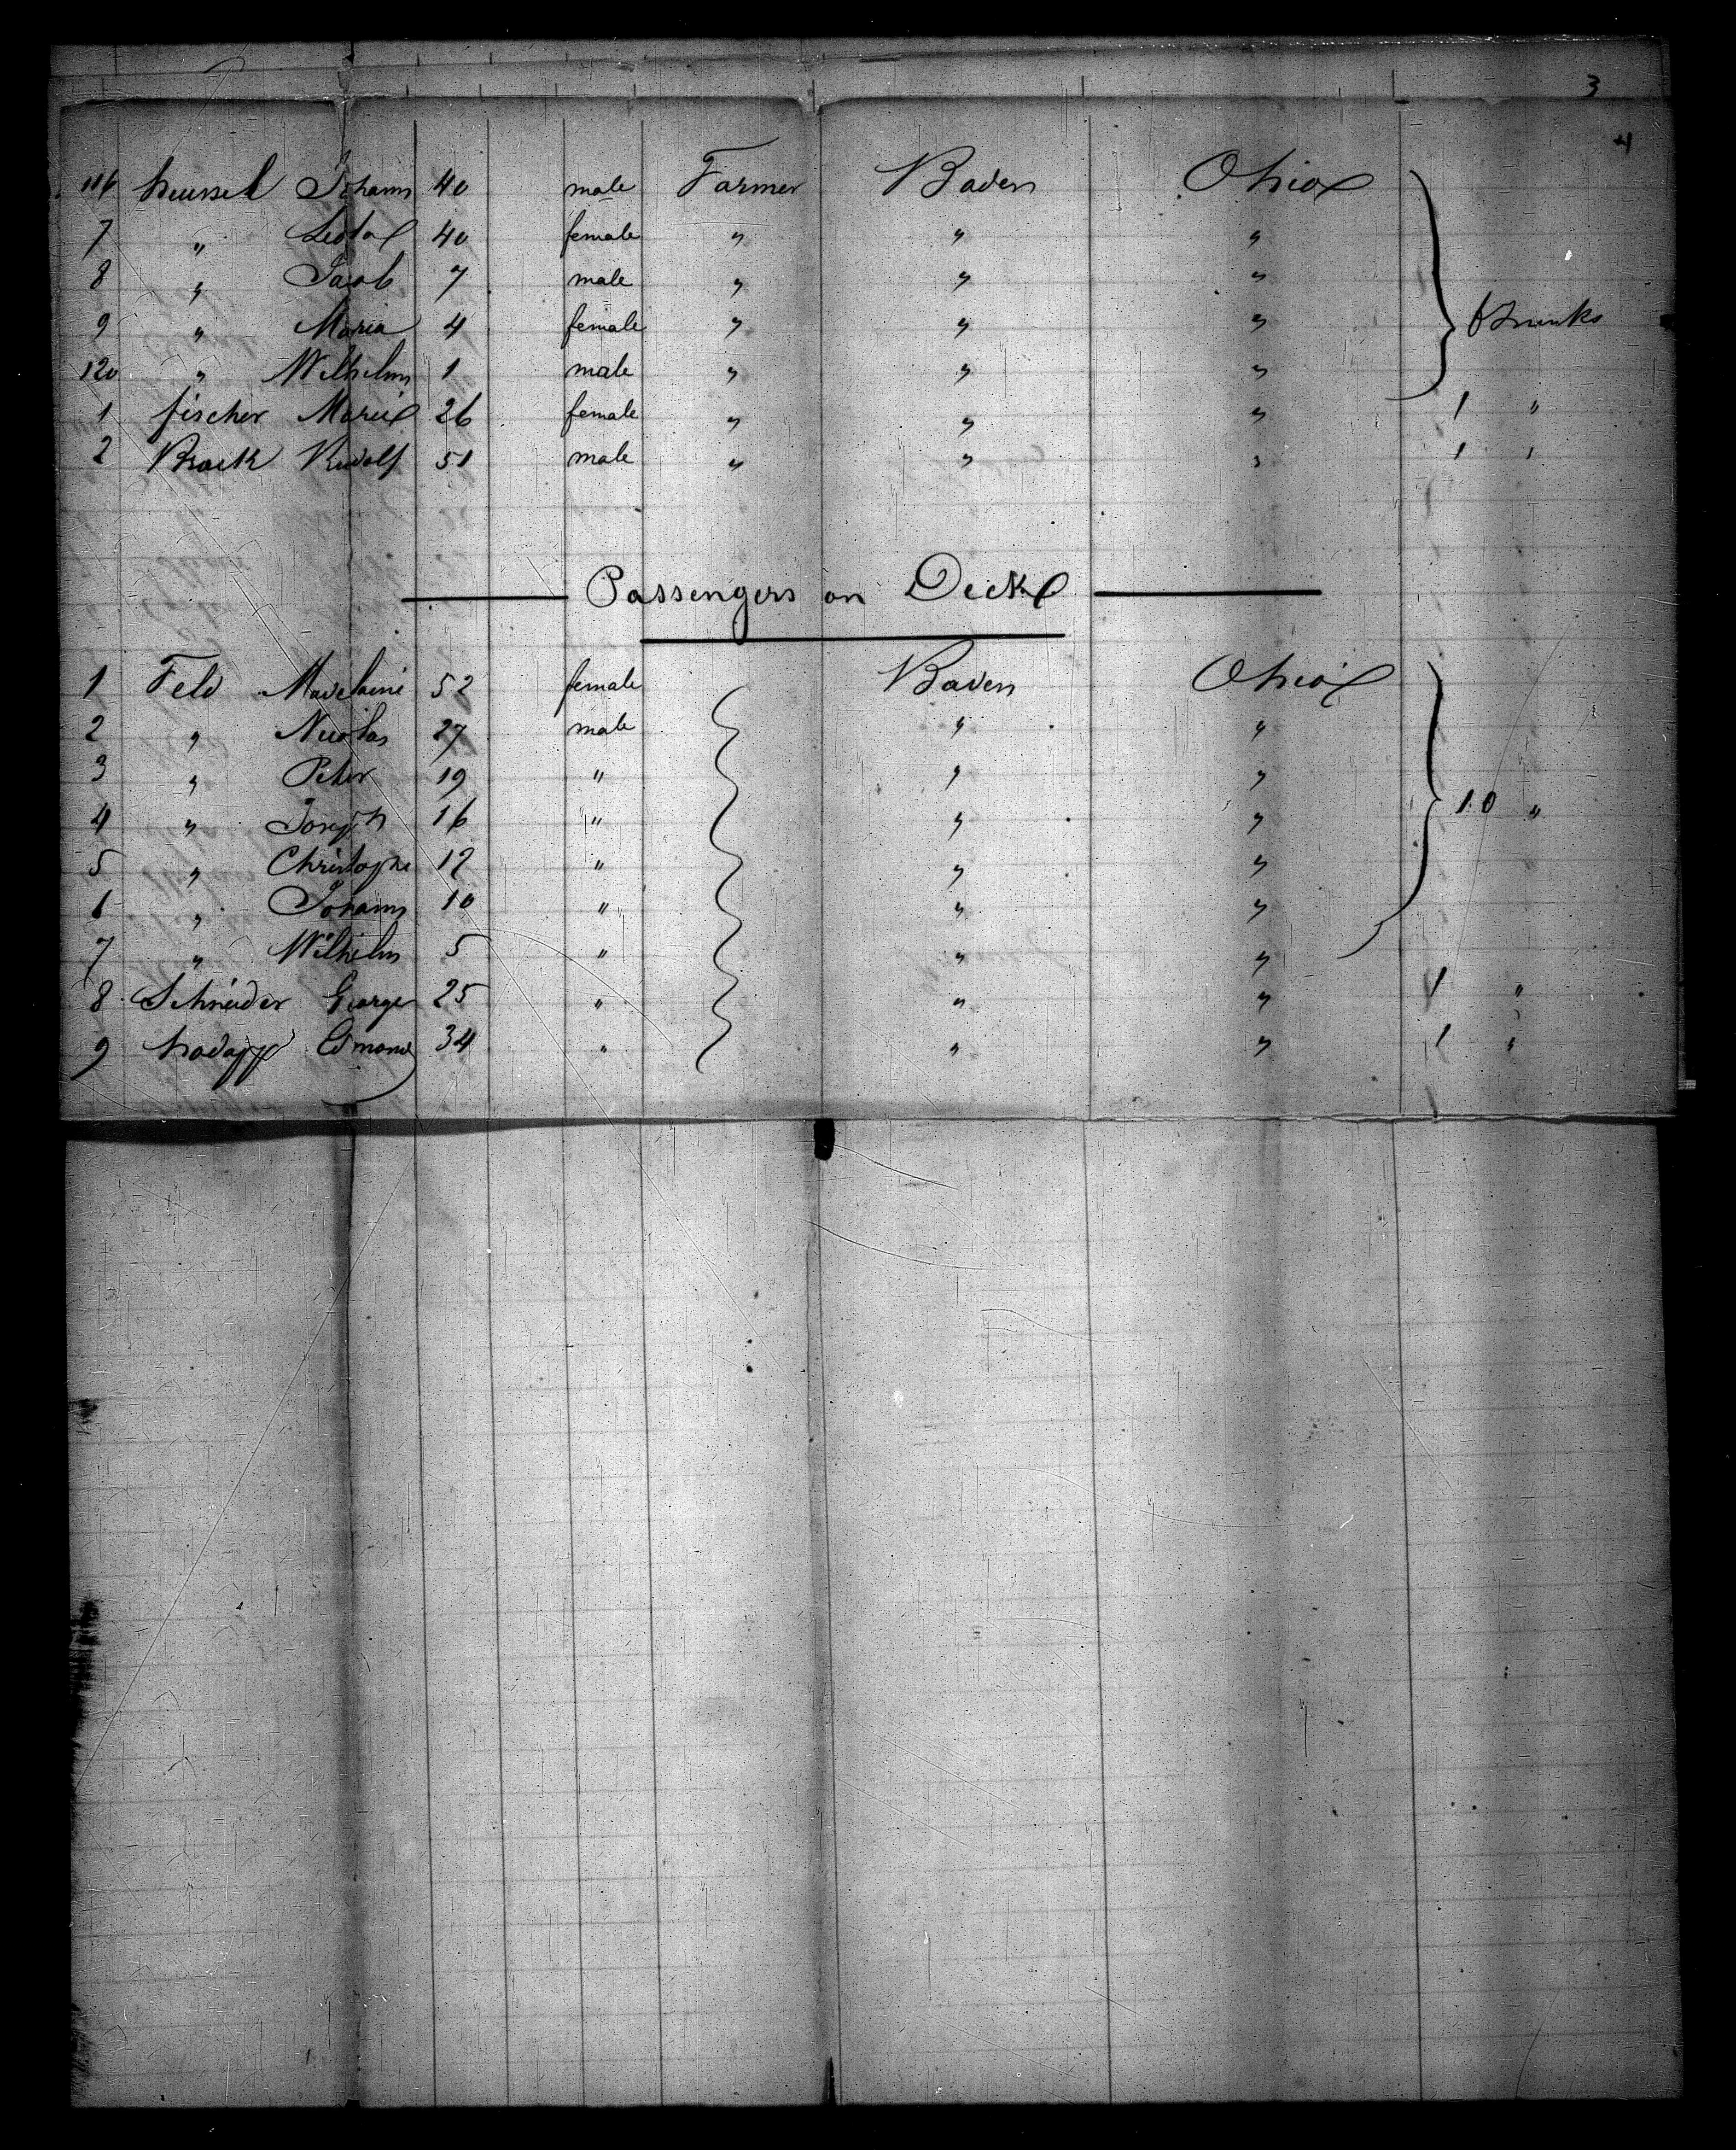 3
4
116 heussel Johann 40 male Farmer Baden Ohio
7 " 40 female " " "
8 " Jacob 7 male " " "
9 " Maria 4 female " " " 6 Trunks
120 " Wilhelm 1 male " " "
1 fischer Marie 26 female " " " 1 "
2 Brack Rudolf 51 male " " " 1 "
Passengers on Deck
1 Feld Madelaine 52 female Baden Ohio
2 " Nicolas 27 male " "
3 " Peter 19 " " "
4 " Joseph 16 " " " 10 "
5 " Christophe 12 " " "
6 " Johann 10 " " "
7 " Wilhelm 5 " " "
8 Schneider George 25 " " " 1 "
9 hodapp Edmond 34 " " " 1 "